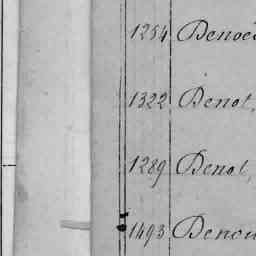 1254 Denoe
1322 Benot,
1289 Denot,
1493 Denou